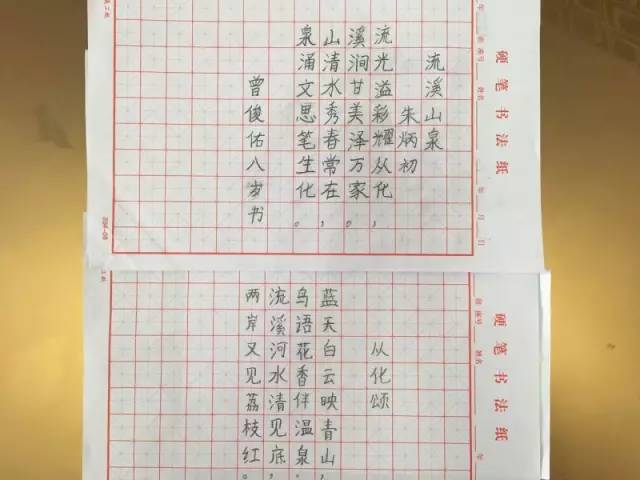 硬笔书法纸
年 班 座号 姓名 年 月 日
流溪山泉
朱炳初
流光溢彩耀从化，
溪涧甘美泽万家。
山清水秀春常在，
泉涌文思笔生化。
曾俊佑八岁书
硬笔书法纸
班 座号 姓名 年
从化颂
蓝天白云映青山，
鸟语花香伴温泉。
流溪河水清见底，
两岸又见荔枝红。